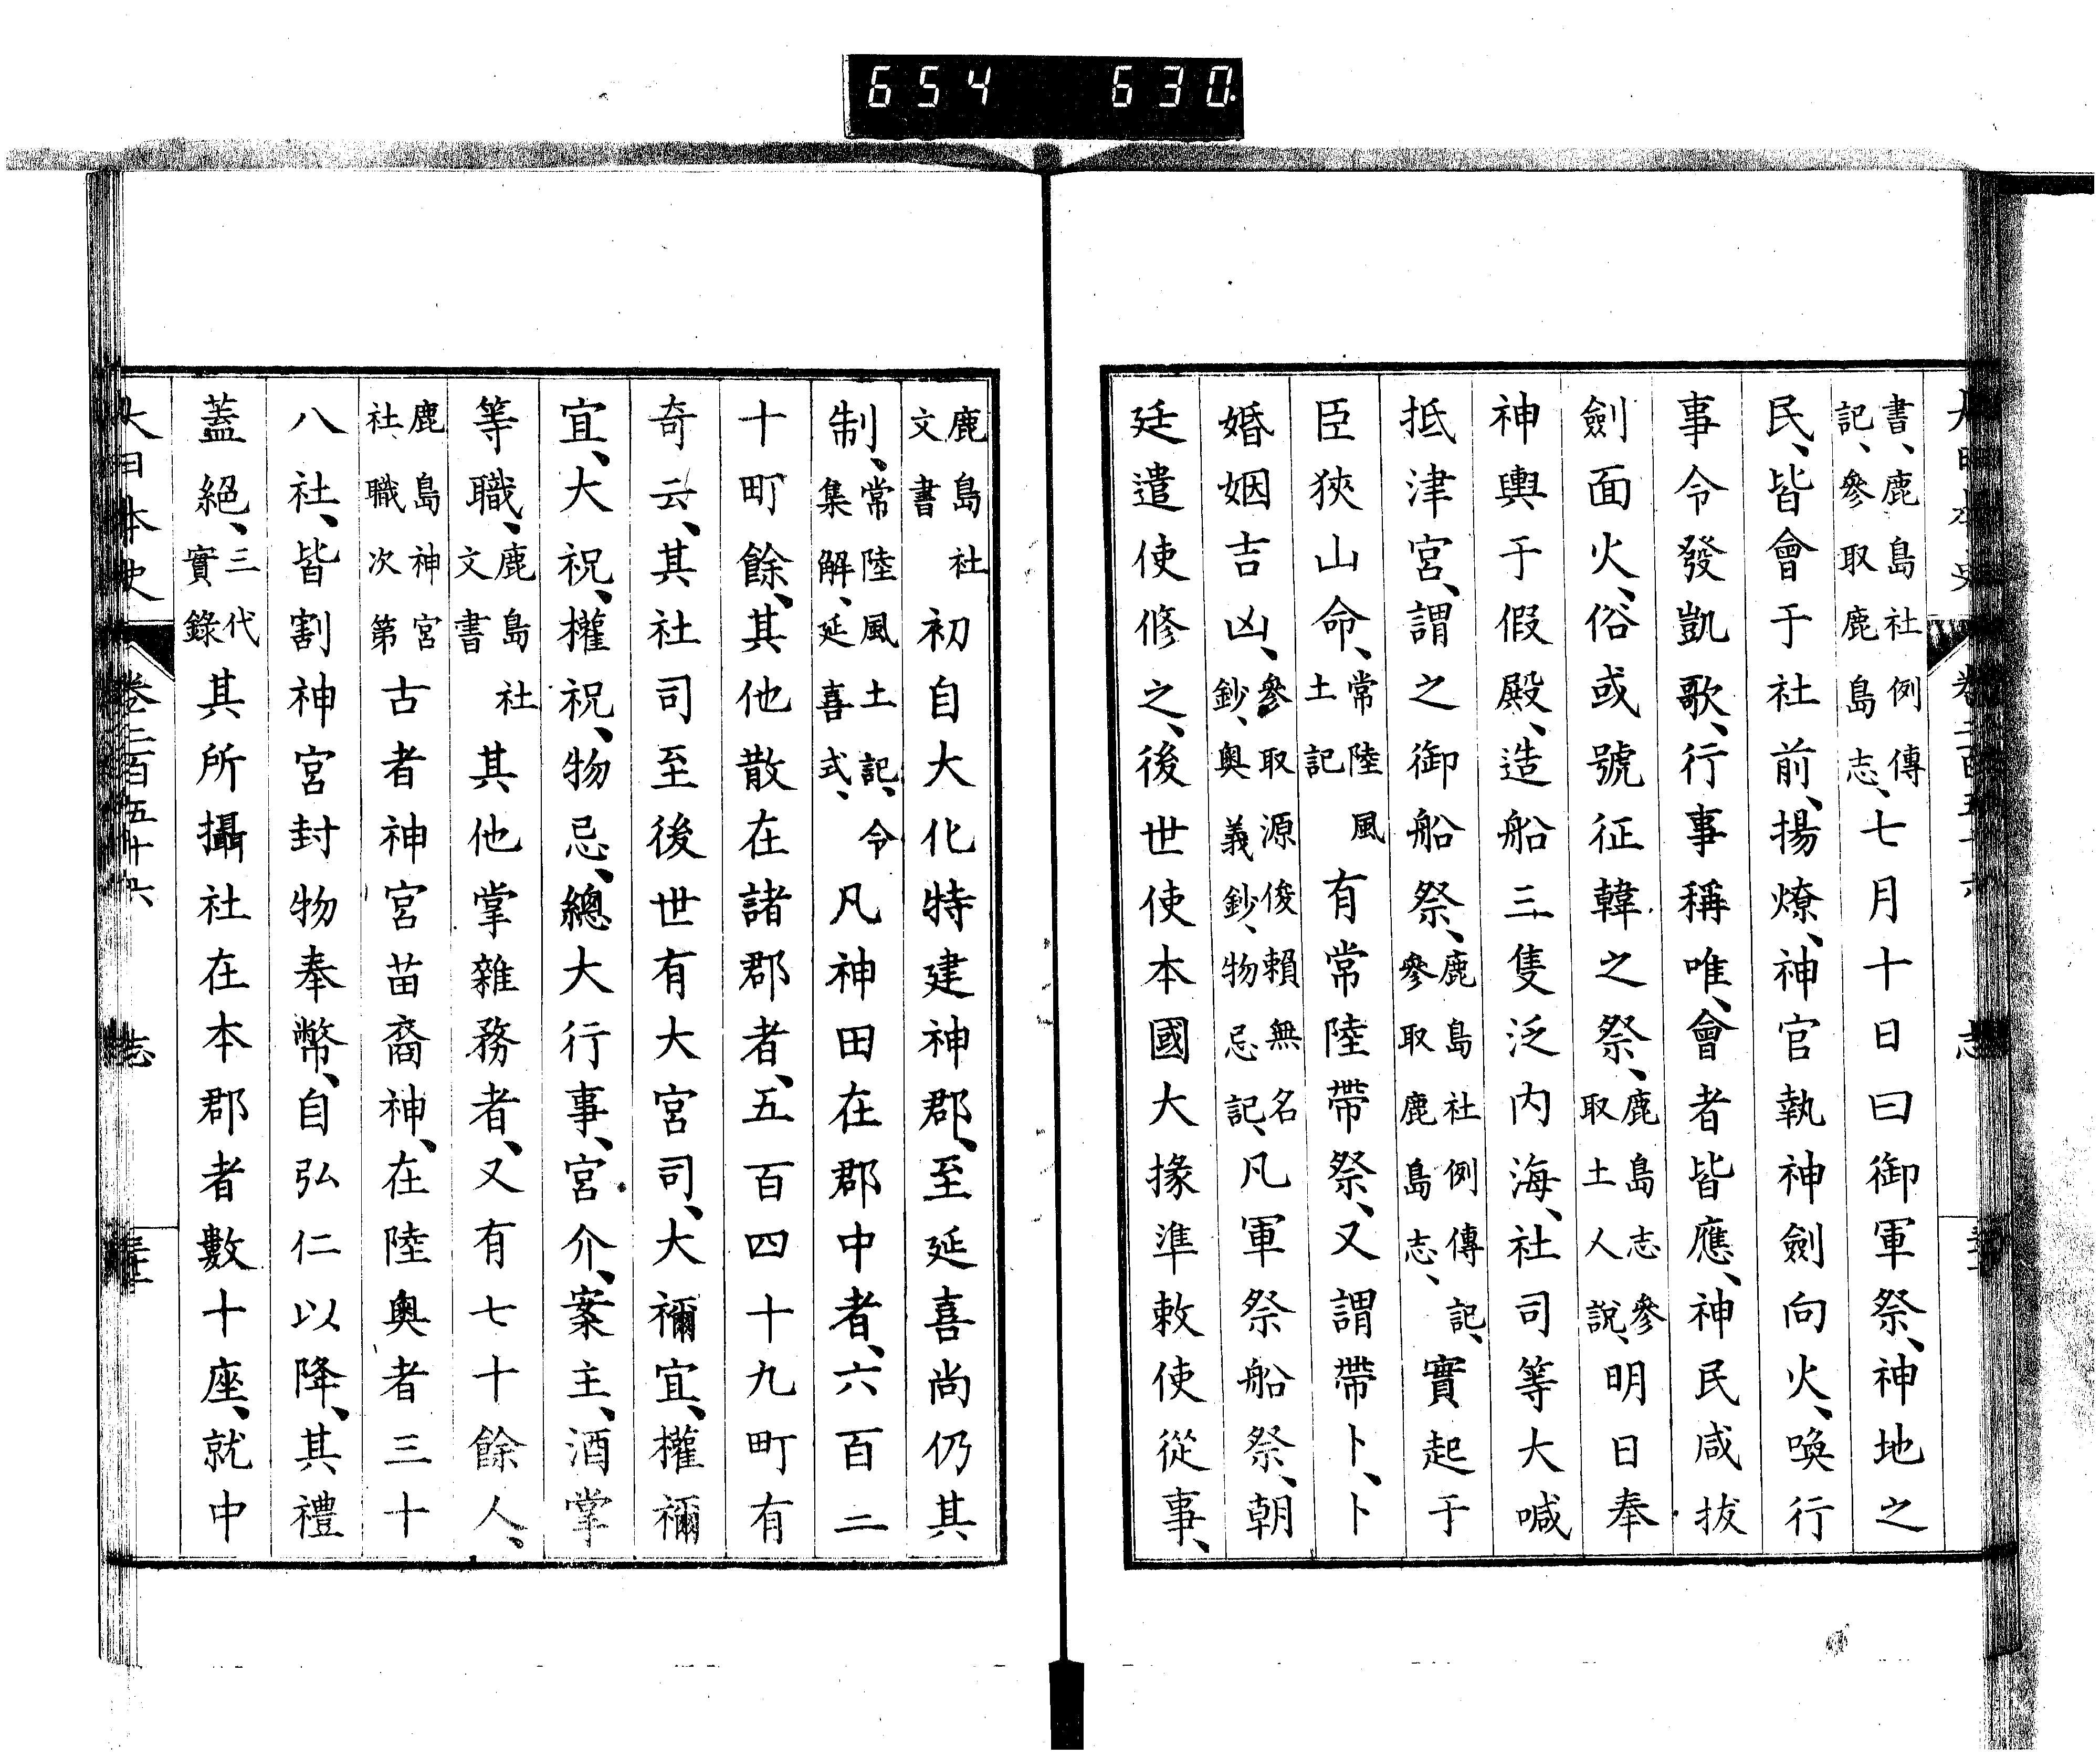 654 630.
書、鹿島社例傳記、參取鹿島志、七月十日曰御軍祭、神地之
民、皆會于社前、揚燎、神官執神劍向火、喚行
事令發凱歌、行事稱唯、會者皆應、神民咸拔
劍面火、俗或號征韓之祭、鹿島志參取土人說、明日奉
神輿于假殿、造船三隻泛内海、社司等大喊
抵津宮、謂之御船祭、鹿島社例傳記、參取鹿島志、實起于
臣狹山命、常陸風土記有常陸帶祭、又謂帶卜、卜
婚姻吉凶、參取源俊賴無名鈔、奧義鈔、物忌記、凡軍祭船祭、朝
廷遣使修之、後世使本國大掾準敕使從事、
鹿島社文書初自大化特建神郡、至延喜尚仍其
制、常陸風土記、令集解、延喜式、凡神田在郡中者、六百二
十町餘、其他散在諸郡者、五百四十九町有
奇云、其社司至後世有大宮司、大禰宜、權禰
宜、大祝、權祝、物忌、總大行事、宮介、案主、酒掌
等職、鹿島社文書其他掌雜務者、又有七十餘人、
鹿島神宮社職次第古者神宮苗裔神、在陸奧者三十
八社、皆割神宮封物奉幣、自弘仁以降、其禮
蓋絕、三代實錄其所攝社在本郡者數十座、就中
大日本史 卷二百五十六 志